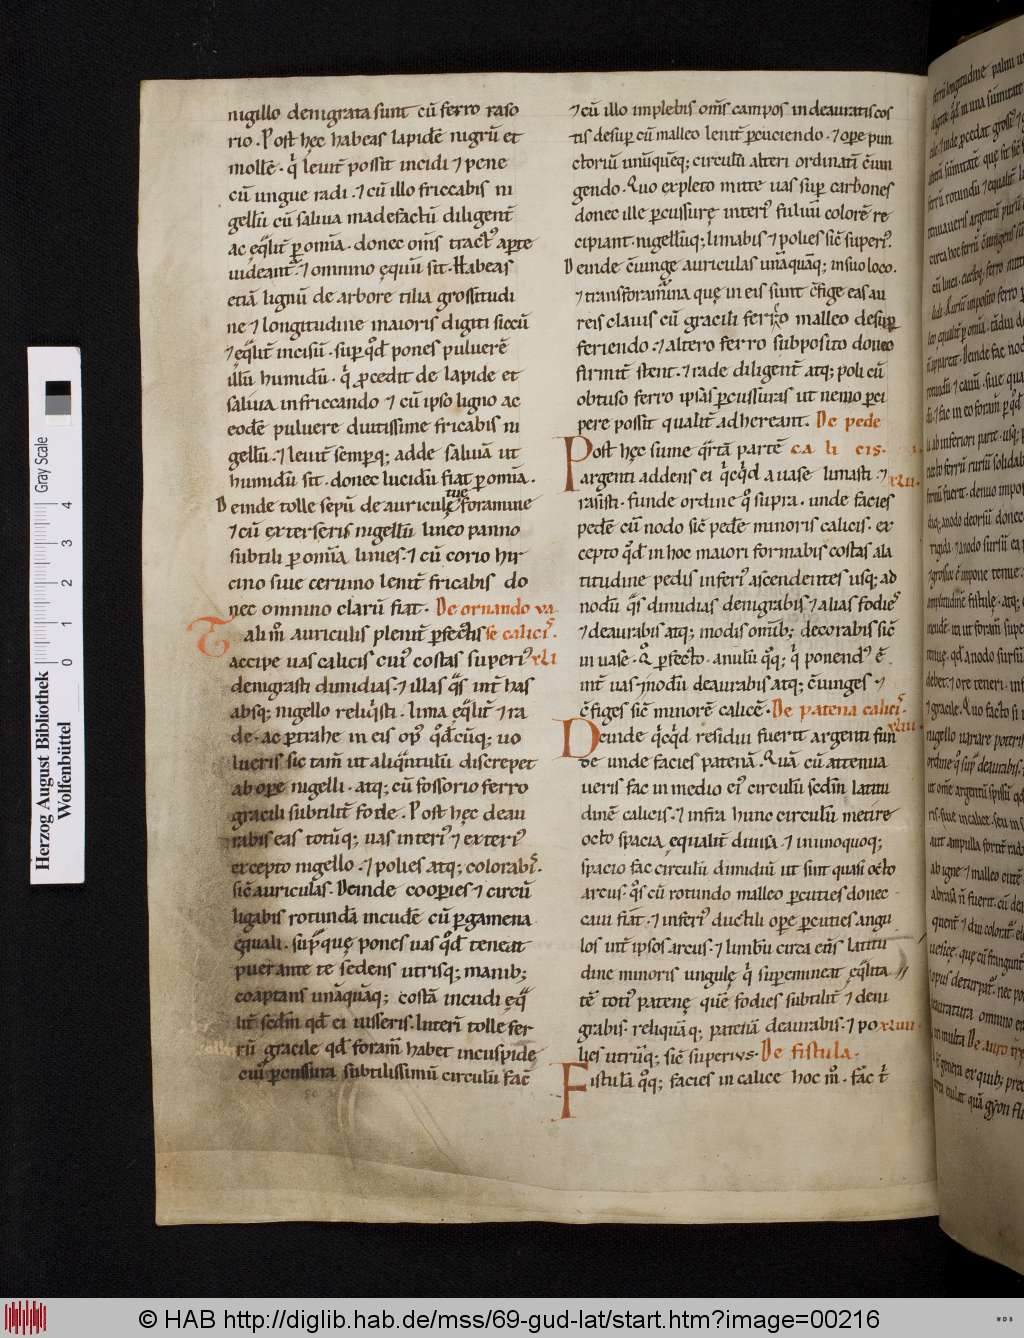 nigillo denigrata sunt cū ferro raso
rio. Post hęc habeas lapidē nigrū et
mollē. q͛ leuit̄ possit incidi ⁊ pene
cū ungue radi. ⁊ cū illo fricabis ni
gellū cū saliua madefactū diligent̄
ac eq̄lit̄ ꝑ om̄ia. donec om̄s tract᷒ aꝑte
uideant᷒. ⁊ omnino ęquū sit. Habeas
etiā lignū de arbore tilia grossitudi
ne ⁊ longitudine maioris digiti siccū
⁊ eq̄lit̄ incisū. suꝑ qd̄ pones puluerē
illū humidū. q͛ ꝓcedit de lapide et
saliua infricando ⁊ cū ipso ligno ac
eodē puluere diutissime fricabis ni
gellū. ⁊ leuit̄ semꝑq; adde saliuā ut
humidū sit. donec lucidū fiat ꝑ om̄ia.
Deinde tolle sepū de auriculę tuę foramine
⁊ cū exterseris nigellū lineo panno
subtili ꝑ om̄ia lines. ⁊ cū corio hir
cino siue ceruino lenit̄ fricabis do
nec omnino clarū fiat. De ornando va
Tali m̊ auriculis plenit̄ ꝑfectis se calicis.
accipe uas calicis cui᷒ costas superi᷒ xli
denigrasti dimidias. ⁊ illas q̄s int̄ has
absq; nigello reliq͛sti. lima eq̄lit̄ ⁊ ra
de. ac ꝑtrahe in eis op᷒ qd̄cūq; uo
lueris. sic tam̄ ut aliq̄ntulū discrepet
ab oꝑe nigelli. atq; cū fossorio ferro
gracili subtilit̄ fode. Post hęc deau
rabis eas totūq; uas interi᷒ ⁊ exteri᷒
excepto nigello. ⁊ polies atq; colorabis.
sic̄ auriculas. Deinde cooꝑies ⁊ circū
ligabis rotundā incudē cū ꝑgamena
ęquali. suꝑ quę pones uas qd̄ teneat
puer ante te sedens utrisq; manib;
coaptans unāquāq; costā incudi eq̄
lit̄ scd̄m qd̄ ei iusseris. Interi tolle fer
rū gracile qd̄ foram̄ habet in cuspide
cui᷒ ꝑcussura subtilissimū circulū facit
⁊ cū illo implebis om̄s campos in deauratis cos
tis desuꝑ cū malleo lenit̄ ꝑcuciendo. ⁊ oꝑe pun
ctoriū unūquēq; circulū alteri ordinatī c̄iun
gendo. Quo expleto mitte uas suꝑ carbones
donec ille ꝑcussurę interi᷒ fuluū colorē re
cipiant. nigellūq; limabis ⁊ polies sic̄ superi᷒.
Deinde c̄iunge auriculas unāquāq; in suo loco.
⁊ transforamina quę in eis sunt c̄fige eas au
reis clauis cū gracili ferro ⁊ malleo desuꝑ
feriendo. ⁊ altero ferro subposito donec
firmit̄ stent. ⁊ rade diligent̄ atq; poli cū
obtuso ferro ipsas ꝑcussuras ut nemo ꝑci
pere possit qualit̄ adhereant. De pede
Post hęc sume q͛rtā partē ca li cis.
argenti addens ei q͛cq͛d a uase limasti ⁊ xlii.
rasisti. funde ordine q͛ supra. unde facies
pedē cū nodo sic̄ pedē minoris calicis. ex
cepto qd̄ in hoc maiori formabis costas a la
titudine pedis inferi᷒ ascendentes usq; ad
nodū q̄s dimidias denigrabis ⁊ alias fodies
⁊ deaurabis atq; modis om̄ib; decorabis sic̄
in uase. Q͛ ꝑfecto. anulū q͛q; q͛ ponend᷒ ē
int̄ uas ⁊ nodū deaurabis atq; c̄iunges ⁊
c̄figes sic̄ minorē calicē. De patena calicis.
Deinde q͛cq͛d residui fuerit argenti fun xliii.
de unde facies patenā. Quā cū attenua
ueris fac in medio ei᷒ circulū scd̄m latitu
dinē calicis. ⁊ infra hunc circulū metire
octo spacia ęqualit̄ diuisa. ⁊ in unoquoq;
spacio fac circulū dimidiū ut sint quasi octo
arcus. q̄s cū rotundo malleo ꝑcuties donec
caui fiant. ⁊ inferi᷒ ductili oꝑe ꝑcuties angu
los int̄ ipsos arcus. ⁊ limbū circa eos latitu
dine minoris ungulę q͛ suꝑemineat eq̄lita
tē toti᷒ patenę quē fodies subtilit̄ ⁊ deni
grabis. reliquā q; patenā deaurabis. ⁊ po xliiii
lies utrūq; sic̄ superius. De fistula.
Fistulā q͛q; facies in calice hoc m̊. fac t͛
Herzog August Bibliothek
Wolfenbüttel
Gray Scale
0 1 2 3 4
© HAB http://diglib.hab.de/mss/69-gud-lat/start.htm?image=00216